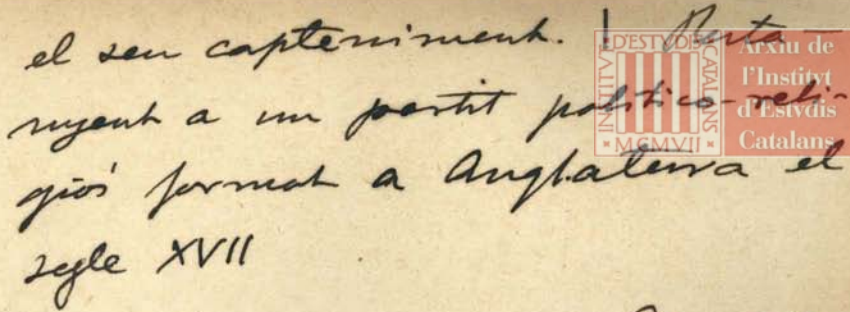 el seu capteniment. | Perta-
nyent a un partit político-reli-
giós format a Anglaterra el
segle XVII
INSTITVT D'ESTVDIS CATALANS
MCMVII
Arxiu de
l'Institvt
d'Estvdis
Catalans